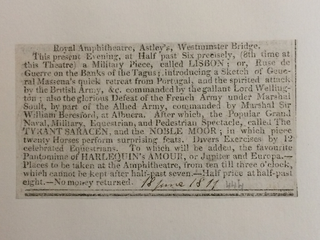 Royal Amphitheatre, Astley's, Westminster Bridge.
This present Evening, at Half past Six precisely, (8th time at
this Theatre) a Military Piece, called LISBON; or, Ruse de
Guerre on the Banks of the Tagus; introducing a Sketch of Gene-
ral Massena's quick retreat from Portugal, and the spirited attack
by the British Army, &c. commanded by the gallant Lord Welling-
ton; also the glorious Defeat of the French Army under Marshal
Soult, by part of the Allied Army, commanded by Marshal Sir
William Beresford, at Albuera. After which, the Popular Grand
Naval, Military, Equestrian, and Pedestrian Spectacle, called The
TYRANT SARACEN, and the NOBLE MOOR; in which piece
twenty Horses perform surprising feats. Divers Exercises by 12
celebrated Equestrians. To which will be added, the favourite
Pantomime of HARLEQUIN'S AMOUR, or Jupiter and Europa.—
Places to be taken at the Amphitheatre, from ten till three o'clock,
which cannot be kept after half-past seven.—Half price at half-past
eight.—No money returned. 18 June 1811